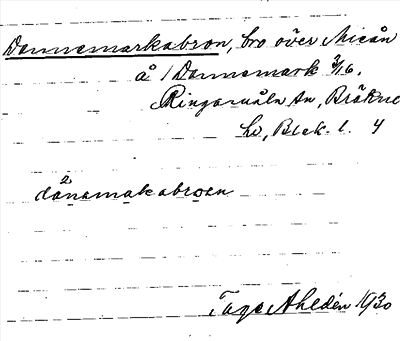 Dannemarkabron, bro över Mieån
å 1 Dannemark 3/16,
Ringamåla sn, Bräkne
hd, Blek. l. 4
dánamakabroen
Tage Ahldén 1930